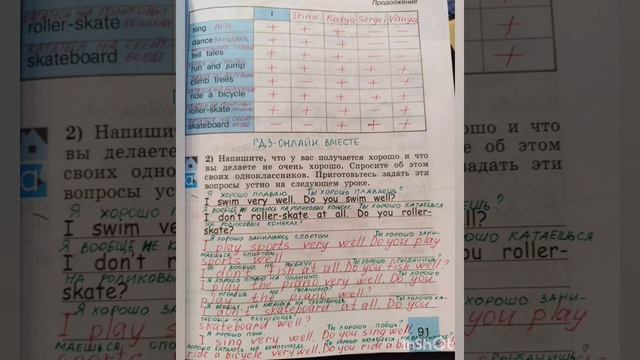 Продолжение
I Irina Katya Sergei Vanya
sing ПЕТЬ + + + − −
dance ТАНЦЕВАТЬ + + +
tell tales + + + − −
run and jump + + + + +
climb trees − − + + +
ride a bicycle + + + + +
roller-skate + + +
skateboard − − + +
ГДЗ-ОНЛАЙН ВМЕСТЕ
2) Напишите, что у вас получается хорошо и что
вы делаете не очень хорошо. Спросите об этом
своих одноклассников. Приготовьтесь задать эти
вопросы устно на следующем уроке.
Я ХОРОШО ПЛАВАЮ. ТЫ ХОРОШО ПЛАВАЕШЬ?
I swim very well. Do you swim well?
Я ВООБЩЕ НЕ КАТАЮСЬ НА РОЛИКОВЫХ КОНЬКАХ. ТЫ ХОРОШО КАТАЕШЬСЯ
I don't roller-skate at all. Do you roller-
НА РОЛИКОВЫХ КОНЬКАХ?
skate?
Я ХОРОШО ЗАНИМАЮСЬ СПОРТОМ. ТЫ ХОРОШО ЗАНИ-
I play sports very well. Do you play
МАЕШЬСЯ СПОРТОМ?
sports well
Я ВООБЩЕ НЕ РЫБАЧУ. ТЫ ХОРОШО РЫБАЧИШЬ?
I don't fish at all. Do you fish well?
Я ХОРОШО ИГРАЮ НА ПИАНИНО. ТЫ ХОРОШО
I play the piano very well. Do you
ИГРАЕШЬ НА ПИАНИНО?
play the piano well?
Я ВООБЩЕ НЕ КАТАЮСЬ НА СКЕЙТБОРДЕ. ТЫ ХОРОШО КА-
I don't skateboard at all. Do you
ТАЕШЬСЯ НА СКЕЙТБОРДЕ?
skateboard well?
Я ХОРОШО ПОЮ. ТЫ ХОРОШО ПОЁШЬ?
I sing very well. Do you sing well.
91
ride a bicycle very well. Do you ride a
InShOt
roller-skate
КОНЬКАХ
skateboard
БОРДЕ
2) Напишите,
вы делаете
своих одноклас
вопросы устно
Я ХОРОШО П
I swim very
Я ВООБЩЕ НЕ
I don't roll
НА РОЛИКОВЫХ
skate?
Я ХОРОШО
I play s
МАЕШЬСЯ
хорошо и что
об этом
задать эти
уроке.
ПЛАВАЕШЬ?
well?
КАТАЕШЬСЯ
roller-
ХОРОШО ЗАНИ-
you play